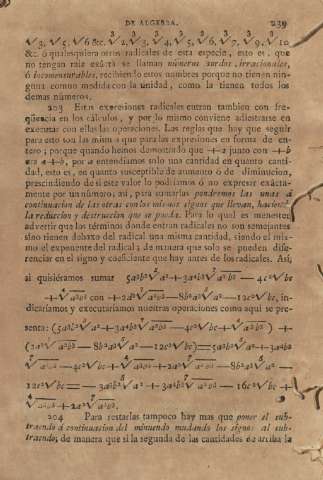 DE ALGEBRA. 239
√3, √5, √6 &c. ∛2, ∛3, ∛4, ∛5, ∛6, ∛7, ∛9, ∛10
&c. ó qualesquiera otros radicales de esta especie, esto es, que
no tengan raiz exâcta se llaman números sordos, irracionales,
ó incomensurables, recibiendo estos nombres porque no tienen nin-
guna comun medida con la unidad, como la tienen todos los
demas números.
203 Estas expresiones radicales entran tambien con fre-
qüencia en los cálculos, y por lo mismo conviene adiestrarse en
executar con ellas las operaciones. Las reglas que hay que seguir
para esto son las mismas que para las expresiones en forma de en-
tero; porque quando hemos demostrado que +a junto con +b
era a+b, por a entendiamos solo una cantidad en quanto canti-
dad, esto es, en quanto susceptible de aumento ó de diminucion,
prescindiendo de si este valor lo podiamos ó no expresar exâcta-
mente por un número; así, para sumarlos pondremos las unas á
continuacion de las otras con los mismos signos que llevan, haciendo
la reduccion y destruccion que se pueda. Para lo qual es menester
advertir que los términos donde entran radicales no son semejantes
sino tienen debaxo del radical una misma cantidad, siendo el mis-
mo el exponente del radical; de manera que solo se pueden dife-
renciar en el signo y coeficiente que hay antes de los radicales. Así,
si quisiéramos sumar
con
in-
dicaríamos y executaríamos nuestras operaciones como aquí se pre-
senta:
204 Para restarlas tampoco hay mas que poner el sub-
traendo á continuacion del minuendo mudando los signos al sub-
traendo; de manera que si la segunda de las cantidades de arriba la